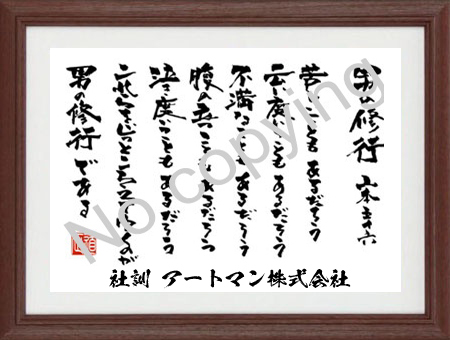 男の修行 山本五十六
苦しいこともあるだろう
云い度いこともあるだろう
不満なこともあるだろう
腹の立つこともあるだろう
泣き度いこともあるだろう
これらをじっとこらえてゆくのが
男の修行である
社訓 アートマン株式会社
No copying